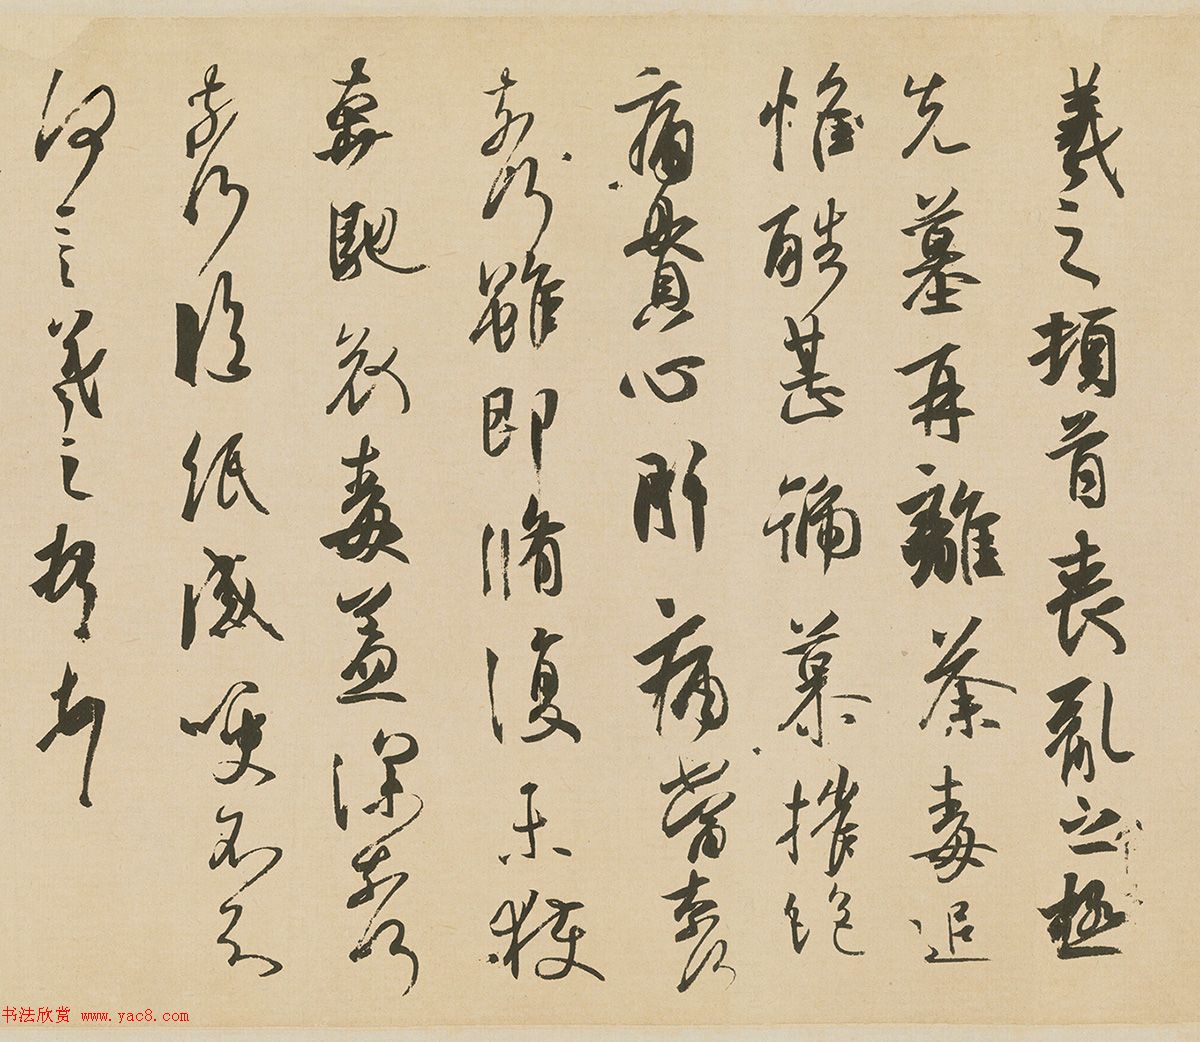 羲之頓首喪亂之極
先墓再離荼毒追
惟酷甚號慕摧絕
痛貫心肝痛當奈何
奈何雖即脩復未獲
奔馳哀毒益深奈何
奈何臨紙感哽不知
何言羲之頓首頓首
书法欣赏 www.yac8.com